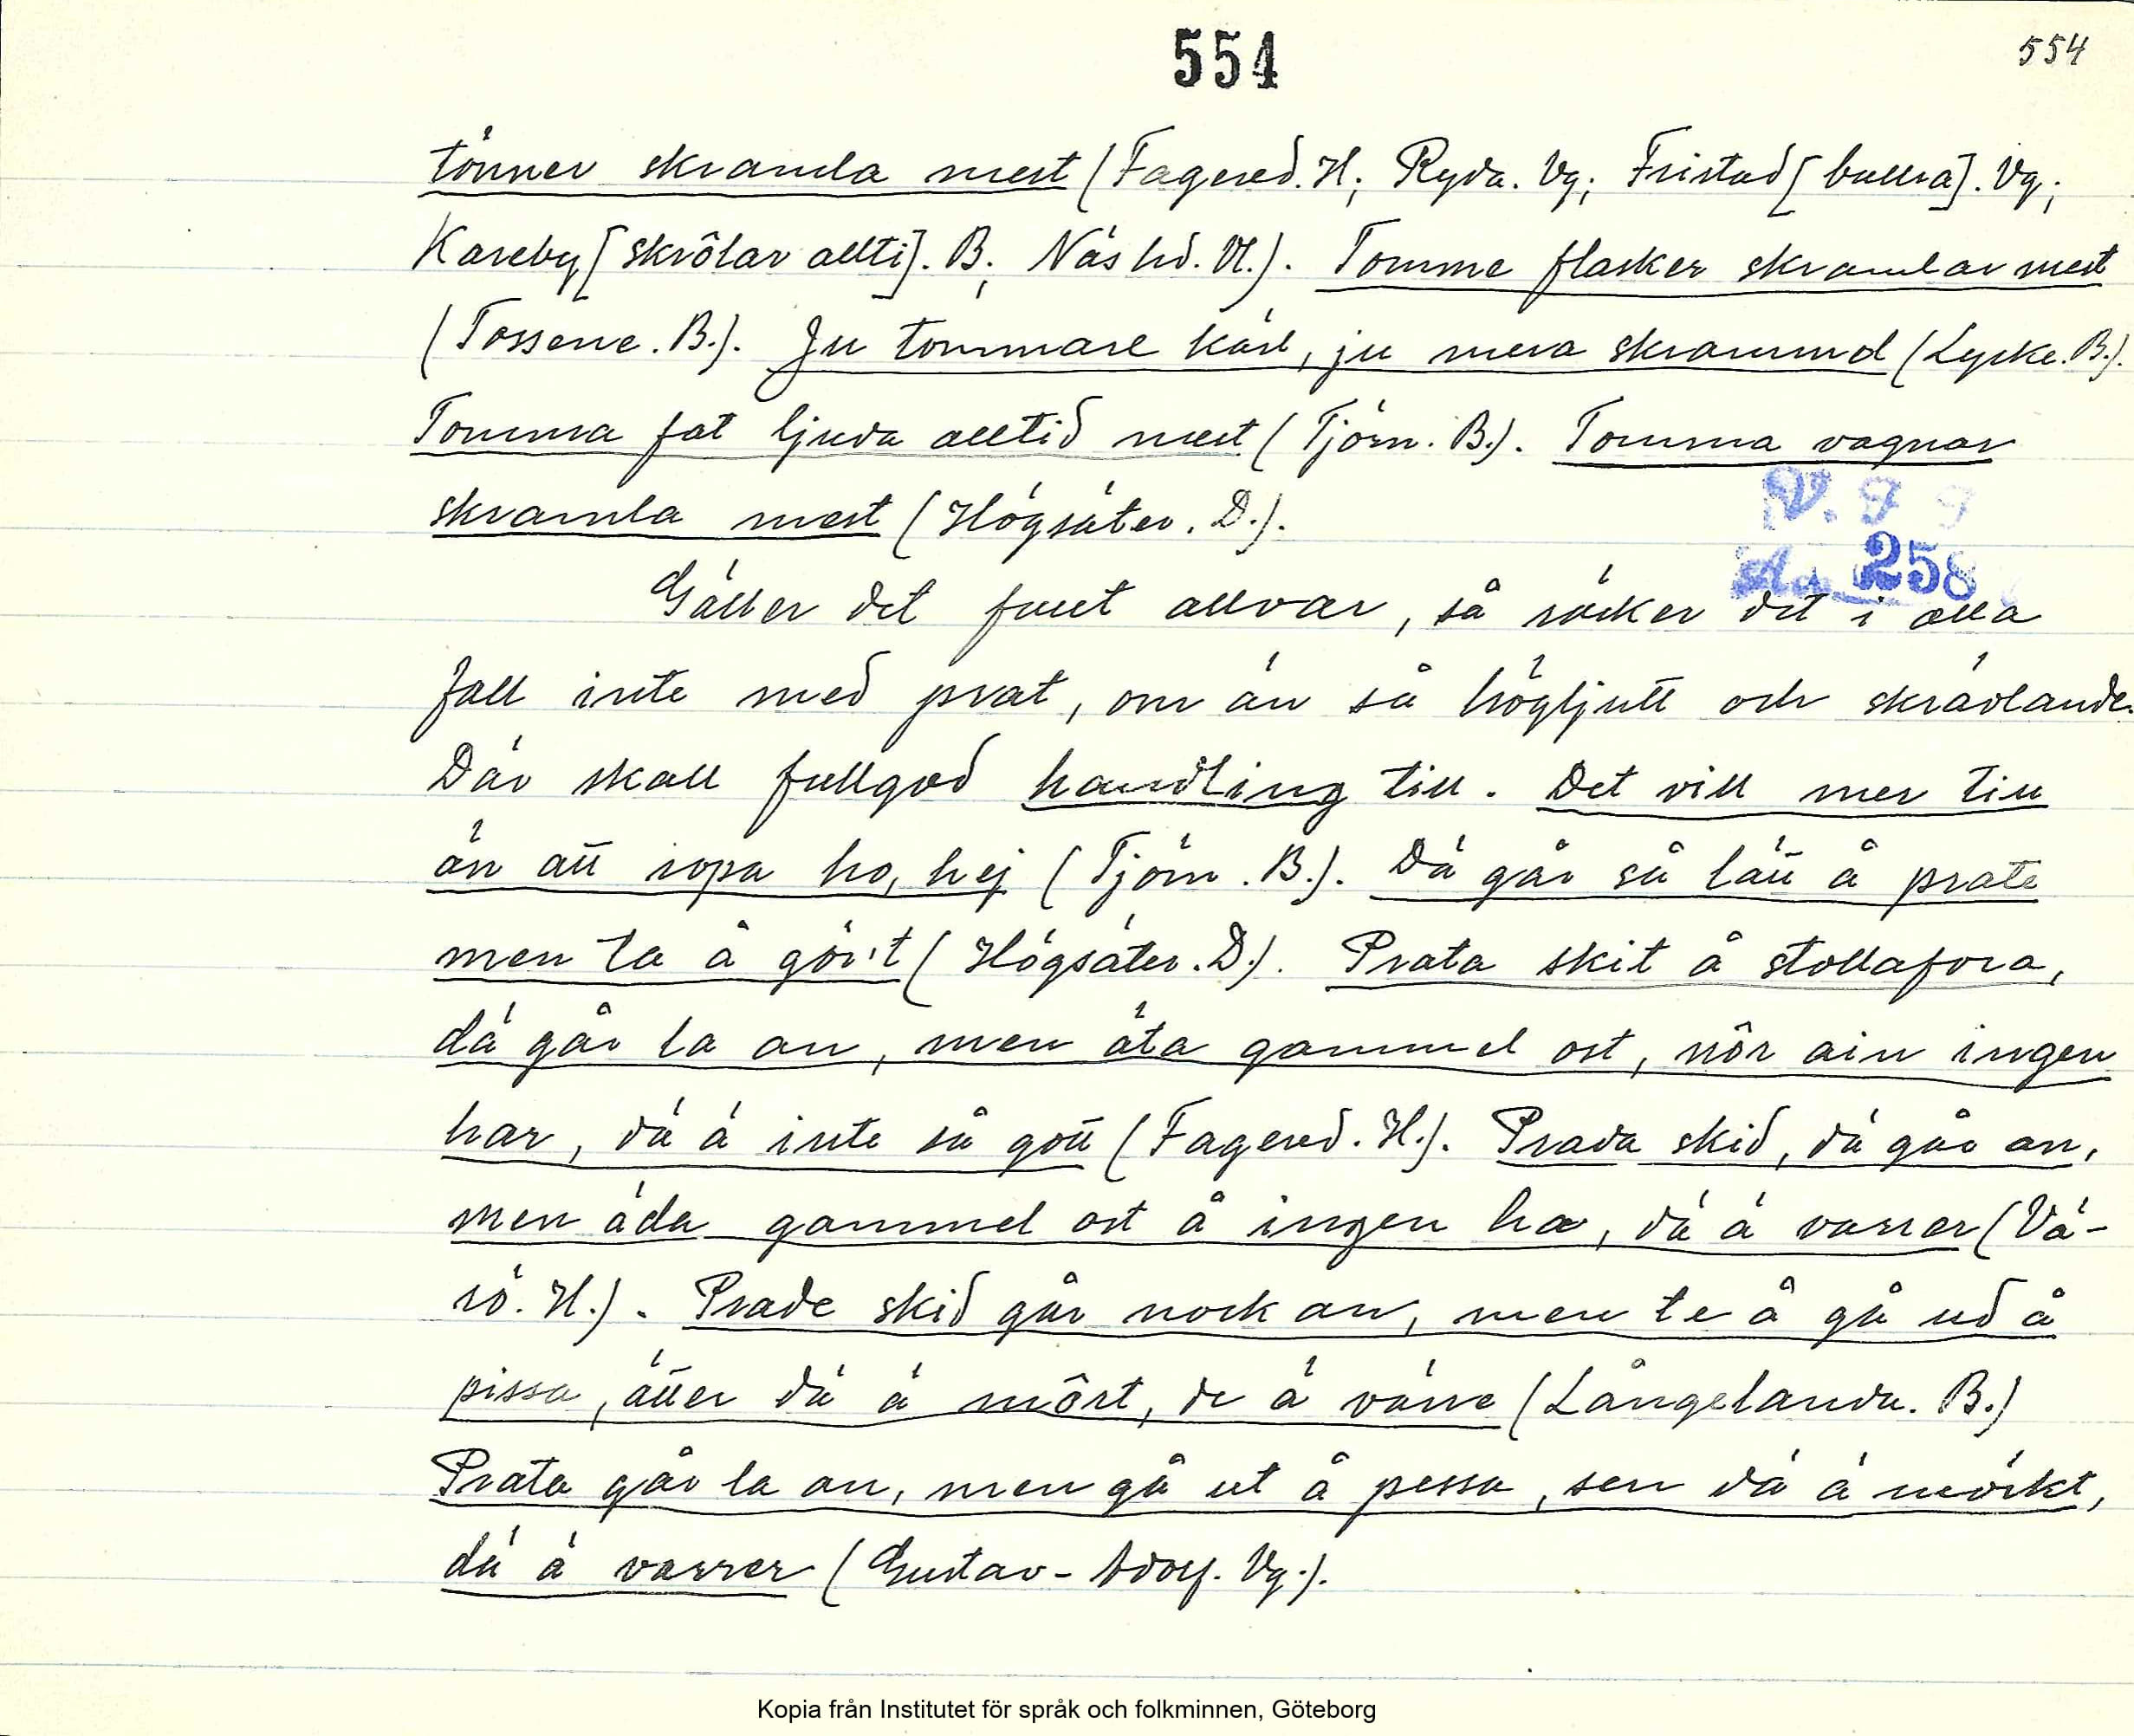 554
554
tönner skramla mest (Fagered. H; Ryda. Vg; Fristad [bullra]. Vg;
Kareby [skrôlar allti]. B; Näs hd. Vl.). Tomme flasker skramlar mest
(Tossene. B.). Ju tommare kärl, ju mera skrammel (Lycke. B.).
Tomma fat ljuda alltid mest (Tjörn. B.). Tomma vagnar
skramla mest (Högsäter. D.).
V. G
258
Gäller det fullt allvar, så räcker det i alla
fall inte med prat, om än så högljutt och skrävlande.
Där skall fullgod handling till. Det vill mer till
än att ropa ho, hej (Tjörn. B.). Dä går så lätt å prate
men ta å gör't (Högsäter. D.). Prata skit å stollafora,
dä går la an, men äta gammel ost, nôr ain ingen
har, dä ä inte så gott (Fagered. H.). Prada skid, dä går an,
men äda gammel ost å ingen ha, dä ä varrer (Vä-
rö. H.). Prade skid går nock an, men te å gå ud å
pissa, ätter dä ä môrt, de ä värre (Långelanda. B.)
Prata går la an, men gå ut å pessa, sen dä ä mörkt,
dä ä varrer (Gustav-Adolf. Vg.).
Kopia från Institutet för språk och folkminnen, Göteborg